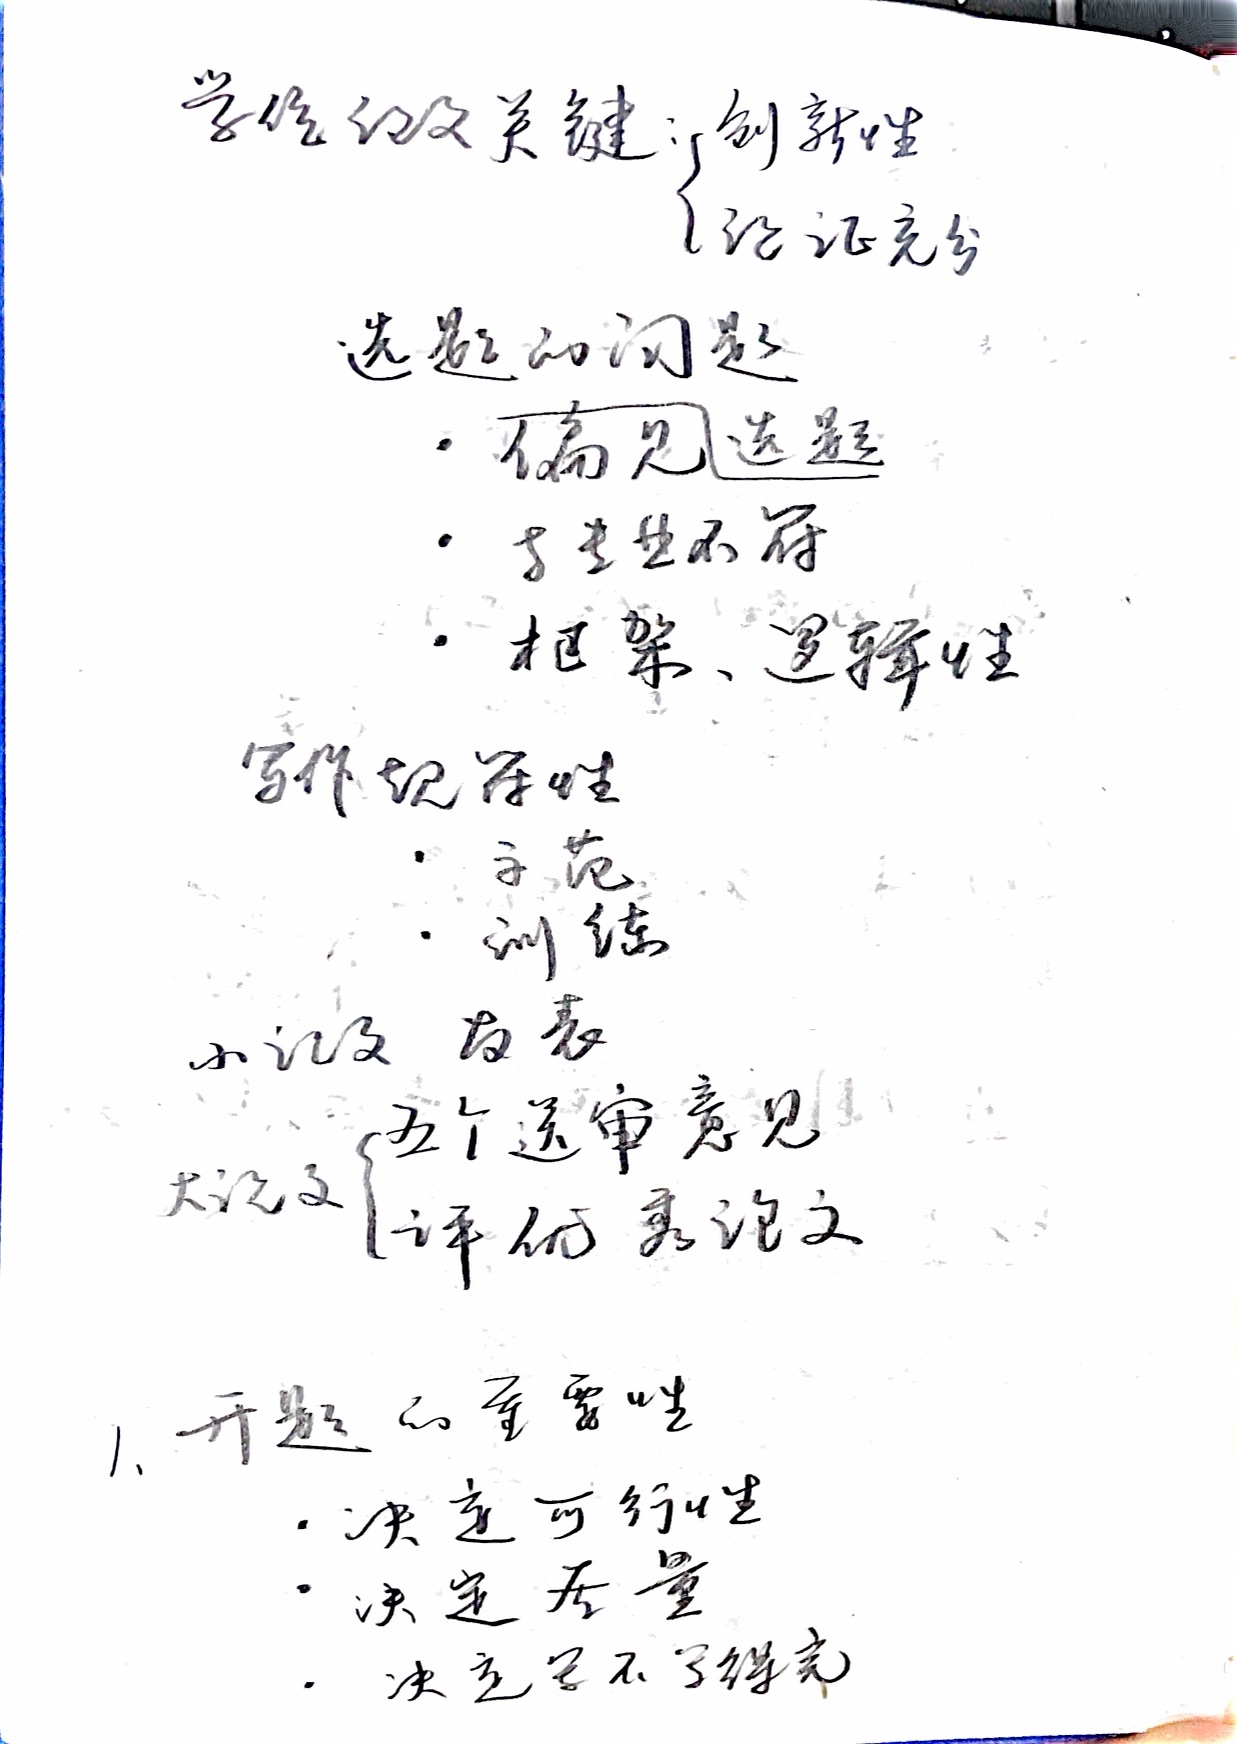 学位论文关键：{创新性
论证充分
选题的问题
· 偏见选题
· 与专业不符
· 框架、逻辑性
写作规符性
· 示范
· 训练
小论文 发表
大论文{五个送审意见
评优秀论文
1、开题的重要性
· 决定可行性
· 决定质量
· 决定写不写得完